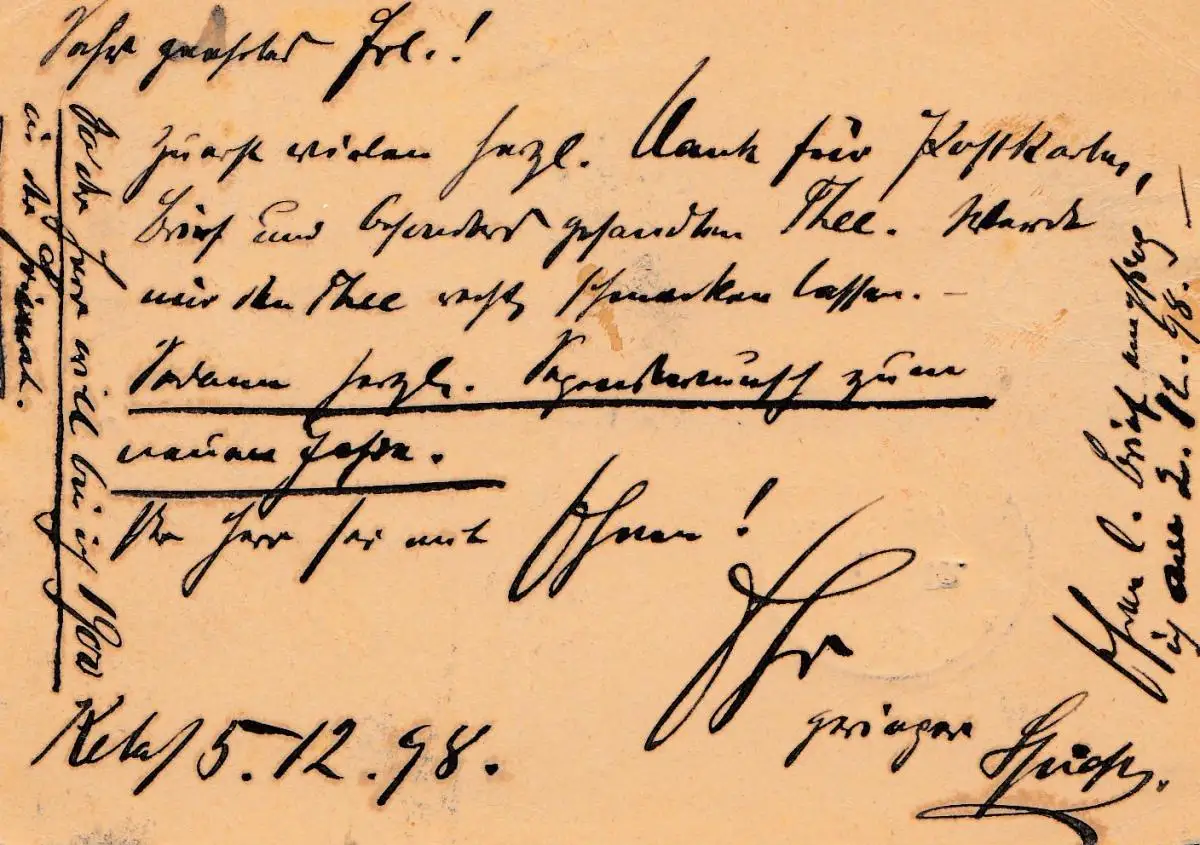 Sehr geehrtes Frl.!
Zuerst vielen herzl. Dank für Postkarten,
Brief und besonders gesandten Thee. Werde
mir den Thee recht schmecken lassen. –
Sodann herzl. Segenswunsch zum
neuen Jahre.
Der Herr sei mit Ihnen!
Ihr
geringer
5.12.98.
So der Herr will bin ich 1900
in der Heimat.
Ihren l. Brief empfing
ich am 2.12.98.